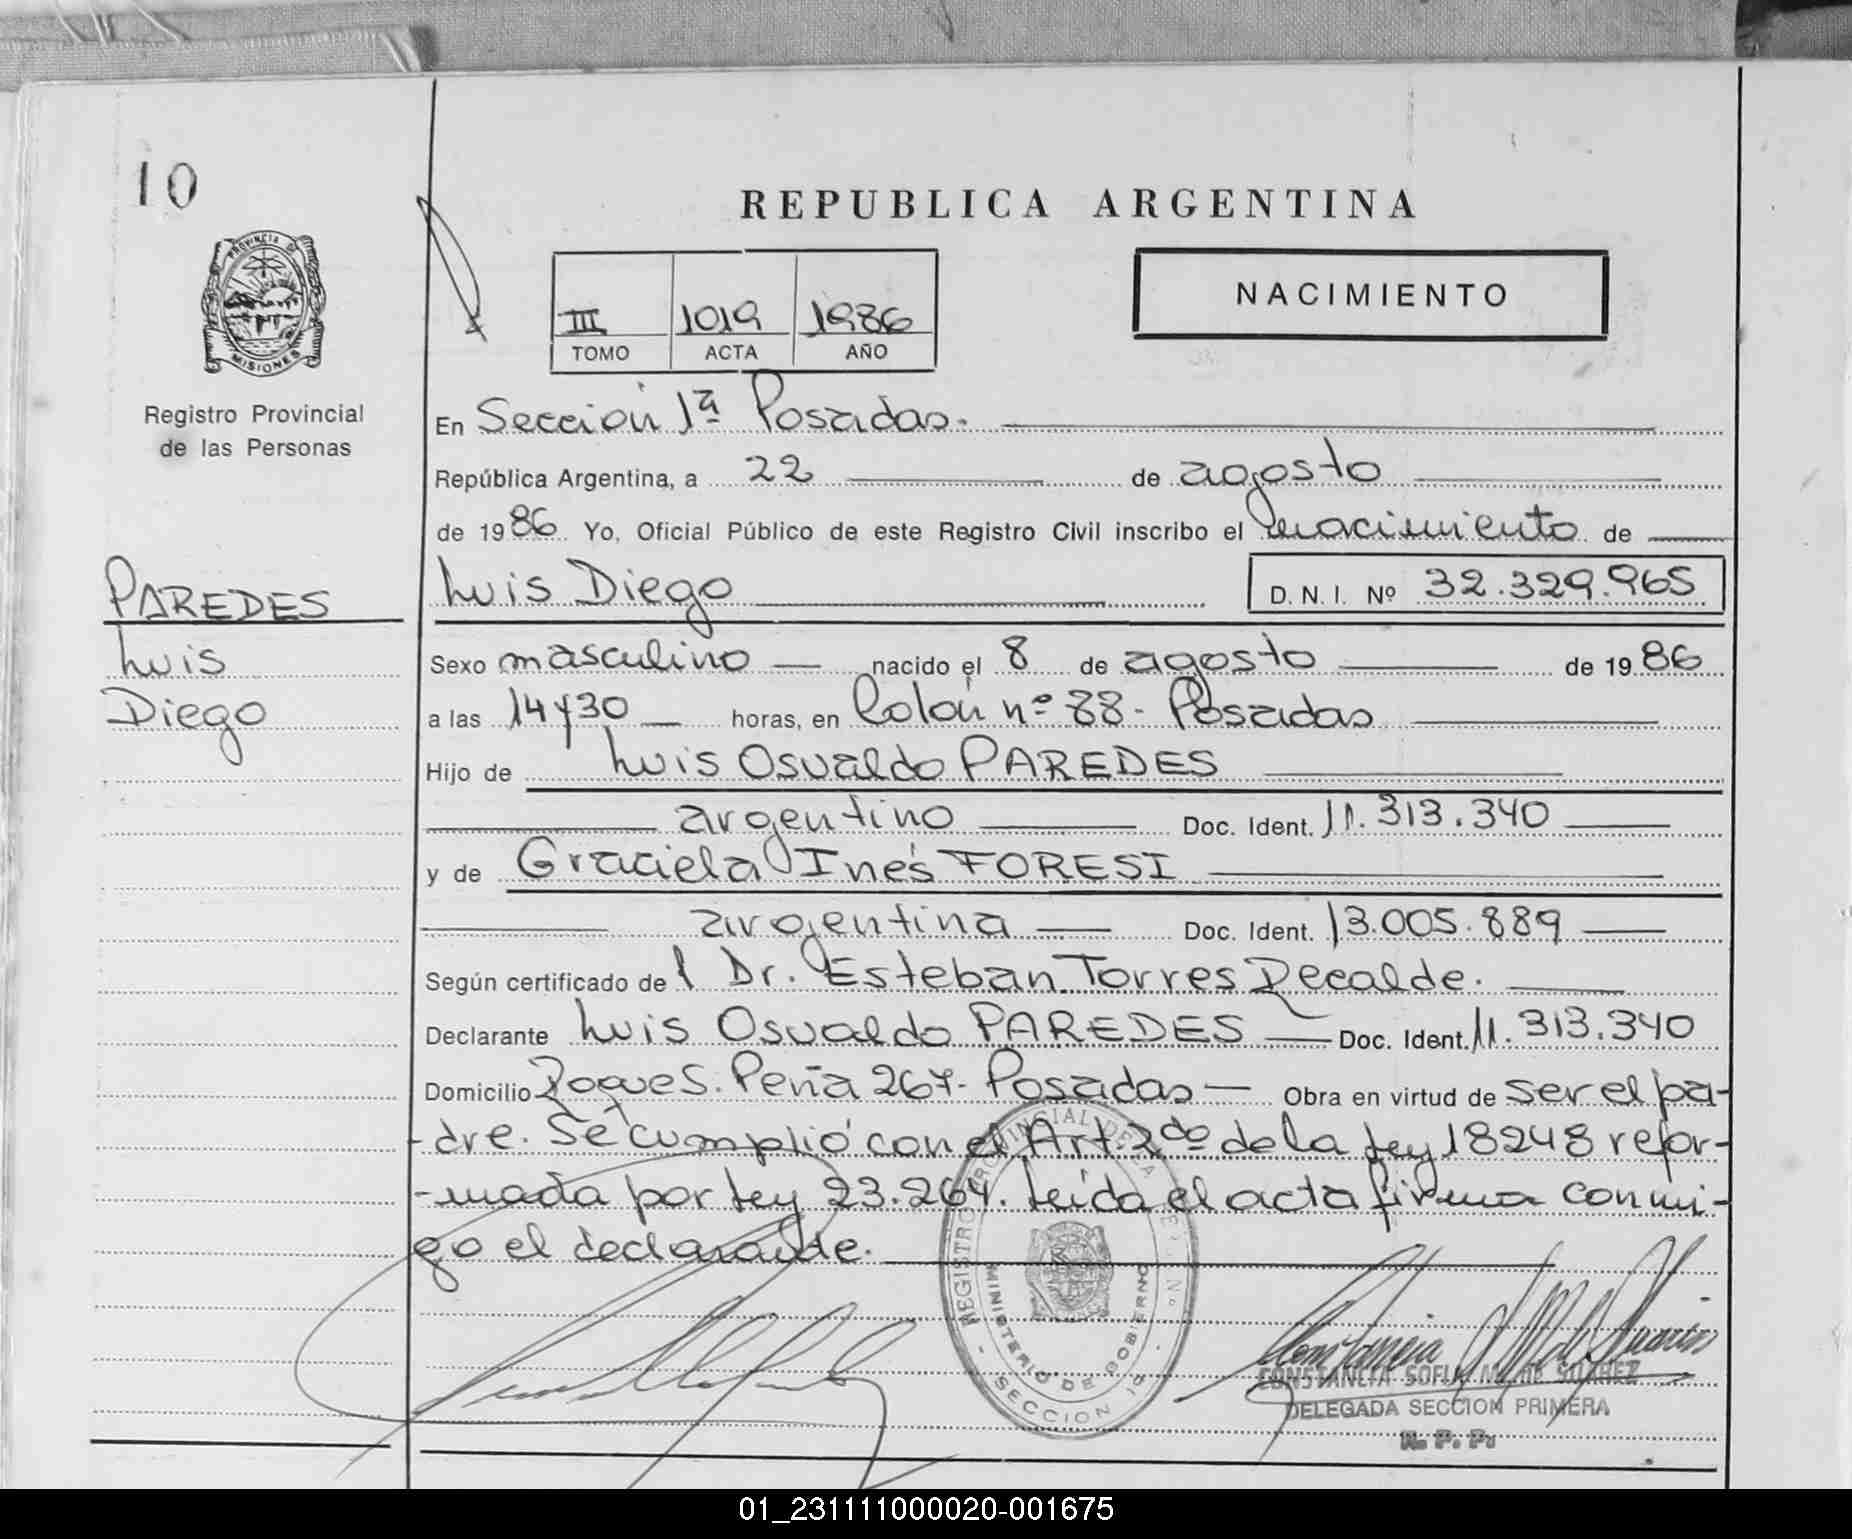 10
REPUBLICA ARGENTINA
PROVINCIA DE
MISIONES
III 1019 1986
TOMO ACTA AÑO
NACIMIENTO
Registro Provincial
de las Personas
En Sección 1ª Posadas.
República Argentina, a 22 de agosto
de 1986 Yo, Oficial Público de este Registro Civil inscribo el nacimiento de
PAREDES
Luis Diego D.N.I. Nº 32.329.965
Luis
Sexo masculino nacido el 8 de agosto de 1986
Diego
a las 14y30 horas, en Colón nº 88- Posadas
Hijo de Luis Osvaldo PAREDES
argentino Doc. Ident. 11.313.340
y de Graciela Inés FORESI
argentina Doc. Ident. 13.005.889
Según certificado del Dr. Esteban Torres Recalde.
Declarante Luis Osvaldo PAREDES Doc. Ident. 11.313.340
Domicilio Roque S. Peña 267- Posadas Obra en virtud de ser el pa-
-dre. Se cumplió con el Art. 2do de la Ley 18248 refor-
-mada por Ley 23.264. Leída el acta firma conmi-
go el declarante.
REGISTRO PROVINCIAL DE LA
MINISTERIO DE GOBIERNO
SECCION
CONSTANCIA SOFIA M. de SUAREZ
DELEGADA SECCION PRIMERA
R. P. P.
01_231111000020-001675